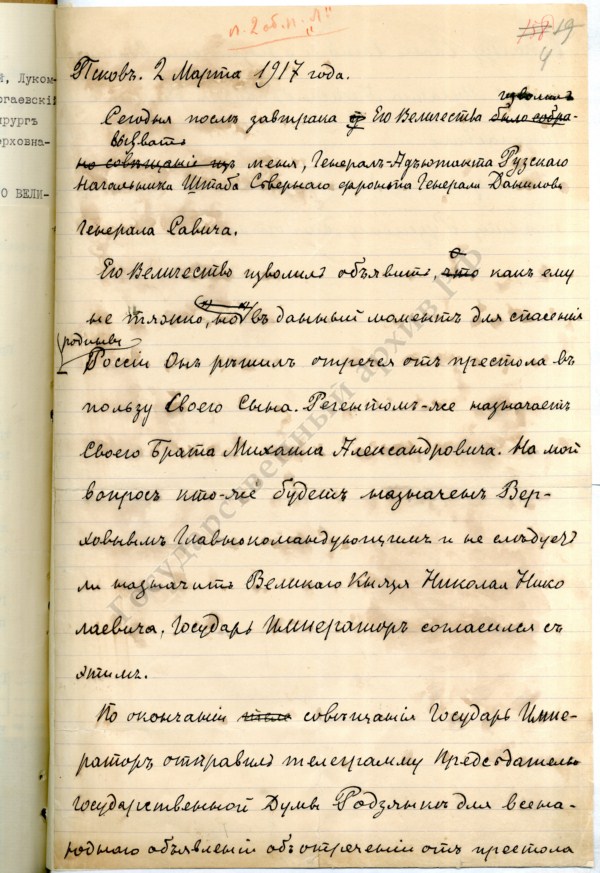 л. 2 об. п. "Л"
158 19
4
й, Луком-
ргаевскі
ирургъ
ерховна-
О ВЕЛИ-
Псковъ. 2 Марта 1917 года.
изволилъ
Сегодня послѣ завтрака Его Величества было собра-
вызвать
но совѣщаніе изъ меня, Генералъ-Адъютанта Рузскаго
Начальника Штаба Сѣвернаго фронта Генерала Данилова
Генерала Савича.
Его Величество изволилъ объявить, что какъ ему
не тяжко, но въ данный моментъ для спасенія
родины
Россіи Онъ рѣшилъ отречся отъ престола въ
пользу Своего Сына. Регентомъ-же назначаетъ
Своего Брата Михаила Александровича. На мой
вопросъ кто-же будетъ назначенъ Вер-
ховнымъ Главнокомандующимъ и не слѣдуетъ
ли назначить Великаго Князя Николая Нико
лаевича, Государь Императоръ согласился съ
этимъ.
По окончаніи совѣщанія Государь Импе-
раторъ отправилъ телеграмму Предсѣдателю
Государственной Думы Родзянкѣ для всена-
роднаго объявленія объ отреченіи отъ престола
Государственный архив РФ